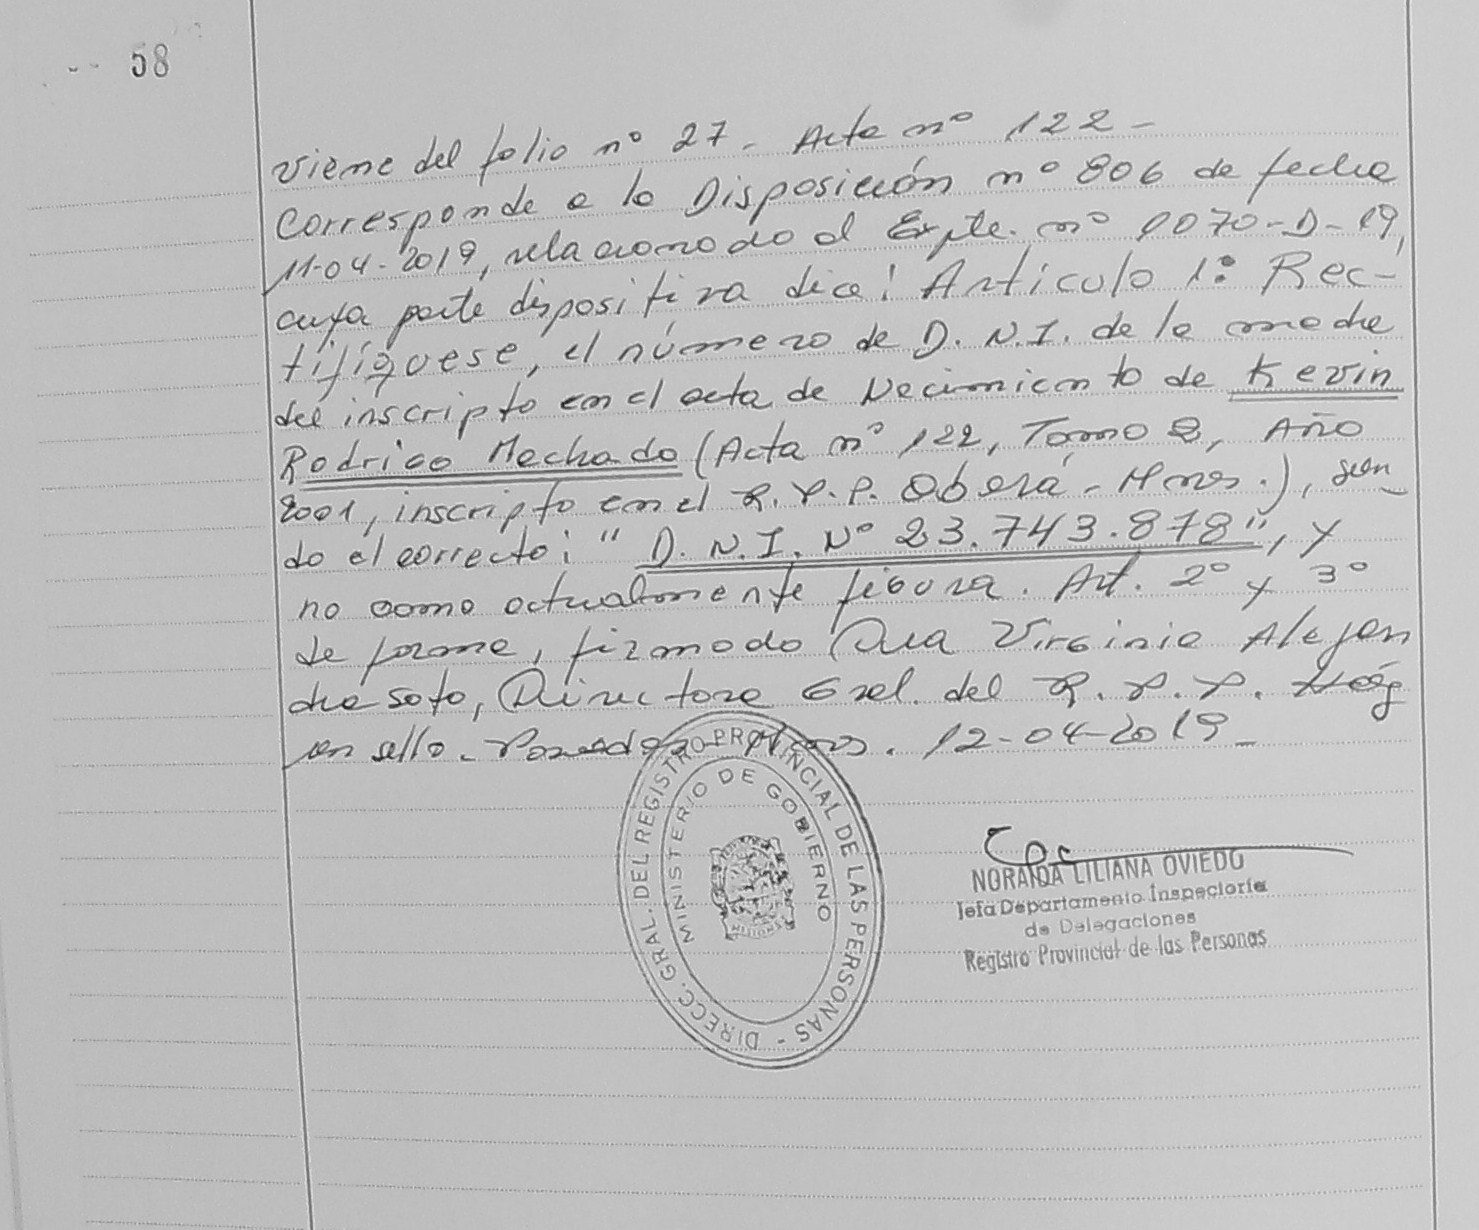 58
viene del folio nº 27 - Acta nº 122 -
Corresponde a la Disposición nº 806 de fecha
11-04-2019, relacionado al Expte. nº 1070-D-19,
cuya parte dispositiva dice: Artículo 1º: Rec-
tifíquese, el número de D.N.I. de la madre
del inscripto en el acta de Nacimiento de Kevin
Rodrigo Machado (Acta nº 122, Tomo 2, Año
2001, inscripto en el R.P.P. Oberá - Mnes.), sien
do el correcto: "D.N.I. Nº 23.743.878", y
no como actualmente figura. Art. 2º y 3º
de forma, firmado Dra Virginia Alejan
dra Soto, Directora Gral. del R.P.P. Hay
un sello - Posadas - Mnes. 12-04-2019 -
DIRECC. GRAL. DEL REGISTRO PROVINCIAL DE LAS PERSONAS -
MINISTERIO DE GOBIERNO
MISIONES
NORAIDA LILIANA OVIEDO
Jefa Departamento Inspectoría
de Delegaciones
Registro Provincial de las Personas